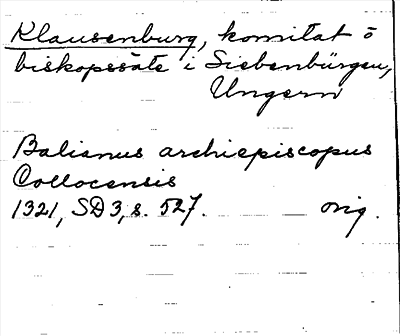 Klausenburg, komitat o
biskopssäte i Siebenbürgen,
Ungern
Balianus archiepiscopus
Collocensis
1321, SD 3, s. 527. orig.